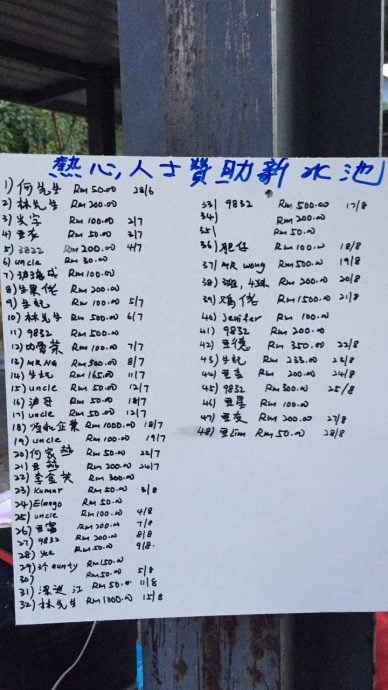 熱心人士贊助新水池
1) 何先生 RM 50.00 28/6
2) 林先生 RM 200.00
3) RM 100.00 2/7
4) RM 50.00 3/7
5) 3822 RM 200.00 4/7
6) uncle RM 30.00
7) RM 100.00
8) 生果佬 RM 200.00
9) RM 100.00 5/7
10) 林先生 RM 500.00 6/7
11) 9832 RM 500.00
12) RM 100.00 7/7
13) MR.NG RM 500.00 8/7
14) RM 165.00 11/7
15) uncle RM 50.00 12/7
16) RM 50.00 18/7
17) uncle RM 50.00 12/7
18) 企業 RM 1000.00 18/7
19) uncle RM 100.00 19/7
20) RM 50.00 22/7
21) RM 200.00 24/7
22) RM 300.00
23) Kumar RM 50.00 3/8
24) RM 50.00
25) uncle RM 100.00 4/8
26) RM 200.00 7/8
27) 9832 RM 200.00 8/8
28) RM 50.00 9/8
29) aunty RM 150.00
30) RM 50.00 5/8
31) RM 50.00 11/8
32) 林先生 RM 1000.00 15/8
33) 9832 RM 500.00 17/8
34) RM 200.00
35) RM 50.00
36) 肥仔 RM 100.00 18/8
37) MR wong RM 500.00 19/8
38) RM 200.00 20/8
39) RM 1500.00 21/8
40) Jenifer RM 100.00
41) 9832 RM 200.00
42) RM 350.00 22/8
43) RM 233.00 23/8
44) RM 200.00 24/8
45) 9832 RM 300.00 25/8
46) RM 100.00
47) RM 200.00 27/8
48) Lim RM 50.00 28/8